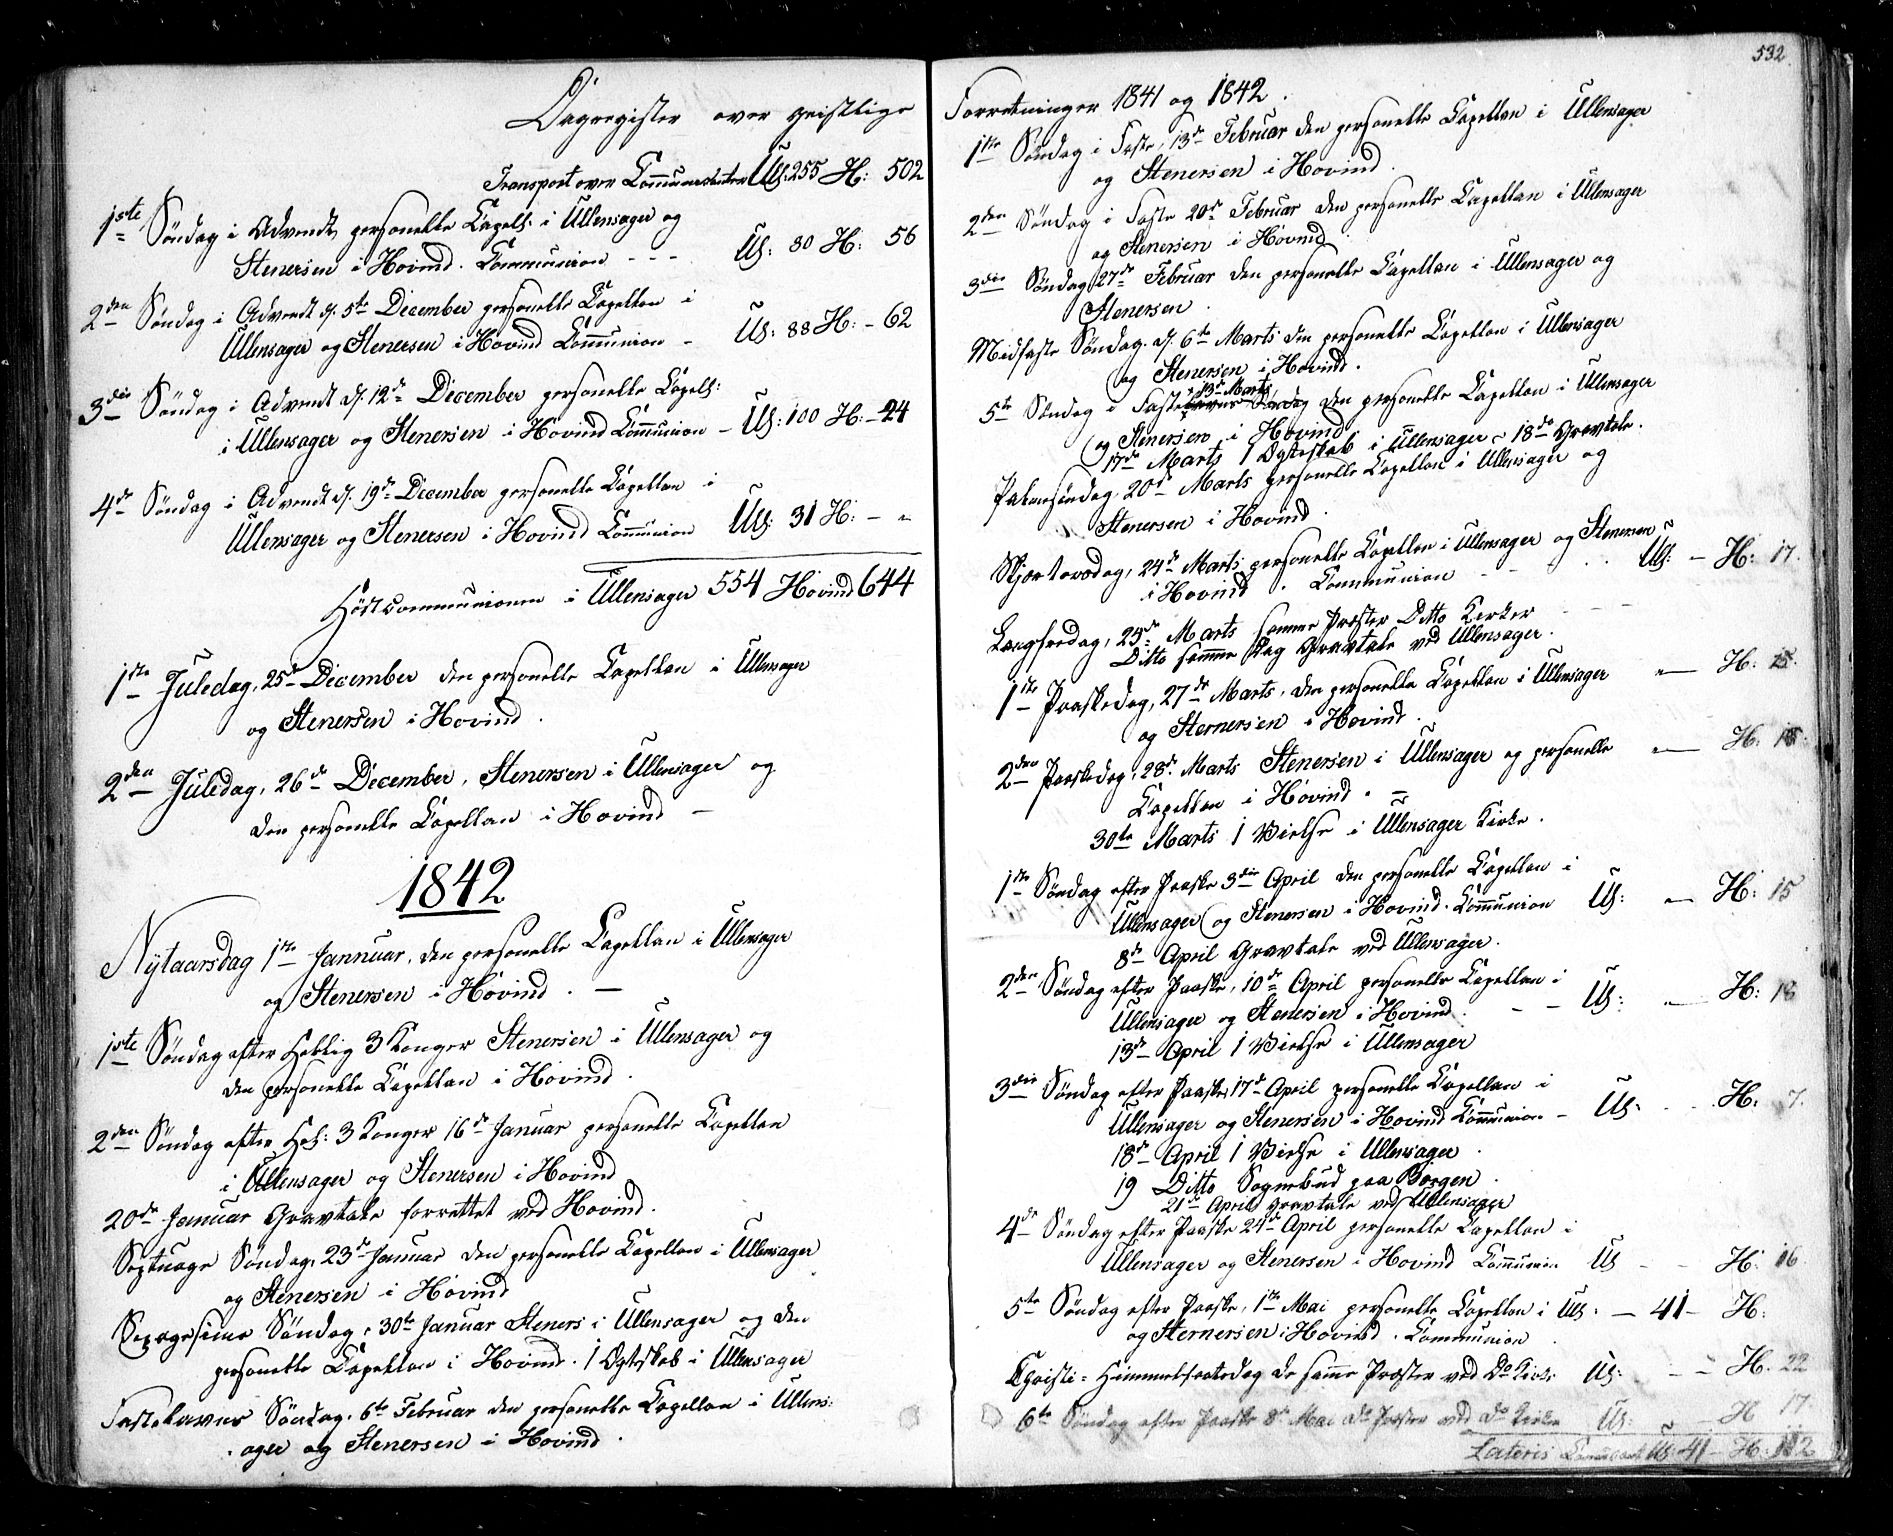 Dagregister over geistlige
Transport over Communicanter Ull: 255 H: 502
1ste Søndag i Advendt, personelle Capell: i Ullensager og
Stenersen i Hovind. Communion - - - Ull: 80 H: 56
2den Søndag i Advendt d. 5te December personelle Capellan i
Ullensager og Stenersen i Hovind Communion - Ull: 88 H: - 62
3die Søndag i Advendt d. 12te December personelle Capell:
i Ullensager og Stenersen i Hovind Communion - Ull: 100 H: - 24
4de Søndag i Advendt d. 19de December personelle Capellan i
Ullensager og Stenersen i Hovind Communion Ull: 31 H: - "
Høstcommunionen i Ullensager 554 Hovind 644
1ste Juledag, 25de December den personelle Capellan i Ullensager
og Stenersen i Hovind.
2den Juledag, 26de December, Stenersen i Ullensager og
den personelle Capellan i Hovind -
1842
Nytaarsdag 1ste Jannuar, den personelle Capellan i Ullensager
og Stenersen i Hovind. -
1ste Søndag efter Hellig 3 Konger Stenersen i Ullensager og
den personelle Capellan i Hovind.
2den Søndag efter Hel: 3 Konger 16de Januar personelle Capellan
i Ullensager og Stenersen i Hovind
20de Januar Gravtale forrettet ved Hovind.
Septuage Søndag, 23de Januar den personelle Capellan i Ullensager
og Stenersen i Hovind
Sexagesima Søndag, 30te Januar Steners i Ullensager og den
personelle Capellan i Hovind. 1 Ægteskab i Ullensager
Fastelavns Søndag, 6te Februar den personelle Capellan i Ullens:
ager og Stenersen i Hovind.
532.
Forretninger 1841 og 1842.
1ste Søndag i Faste, 13de Februar den personelle Capellan i Ullensager
og Stenersen i Hovind.
2den Søndag i Faste 20de Februar den personelle Capellan i Ullensager
og Stenersen i Hovind.
3die Søndag 27de Februar den personelle Capellan i Ullensager og
Stenersen.
Midfaste Søndag d. 6te Marts den personelle Capellan i Ullensager
og Stenersen i Hovind.
13de Marts
5te Søndag i Faste den personelle Capellan i Ullensager
og Stenersen i Hovind.
17de Marts 1 Ægteskab i Ullensager - 18de Gravtale.
Palmesøndag, 20de Marts personelle Capellan i Ullensager og
Stenersen i Hovind.
Skjærtorsdag, 24de Marts personelle Capellan i Ullensager og Stenersen
i Hovind. Communion - - Ull: - H: 17.
Langfredag, 25de Marts samme Præster Ditto Kirker
Ditto samme Dag Gravtale ved Ullensager.
1ste Paaskedag, 27de Marts, den personelle Capellan i Ullensager " - H:
og Sternersen i Hovind.
2den Paaskedag, 28de Marts Stenersen i Ullensager og personelle " - H:
Capellan i Hovind. -
30te Marts 1 Vielse i Ullensager Kirke.
1ste Søndag efter Paaske 3die April den personelle Capellan i
Ullensager og Stenersen i Hovind. Communion Ull: " - H: 15
8de April Gravtale ved Ullensager.
2den Søndag efter Paaske, 10de April personelle Capellan i
Ullensager og Stenersen i Hovind. - - Ull: " - H: 18
13de April 1 Vielse i Ullensager
3die Søndag efter Paaske, 17de April personelle Capellan i
Ullensager og Stenersen i Hovind Communion - Ull: - - H: 7.
18de April 1 Vielse i Ullensager.
19 Ditto Sognebud paa Borgen.
21de April Gravtale ved Ullensager
4de Søndag efter Paaske 24de April personelle Capellan i
Ullensager og Stenersen i Hovind Communion Ull - - H: 16.
5te Søndag efter Paaske, 1ste Mai personelle Capellan i Ull: - 41 - H:
og Sternersen i Hovind. Communion
Christi-Himmelfartsdag de samme Præster ved Do Kirk: Ull: - - H. 22
6te Søndag efter Paaske 8de Mai do Præster ved do Kirker Ull: - H 17.
Lateris Ull: 41 - H: 112